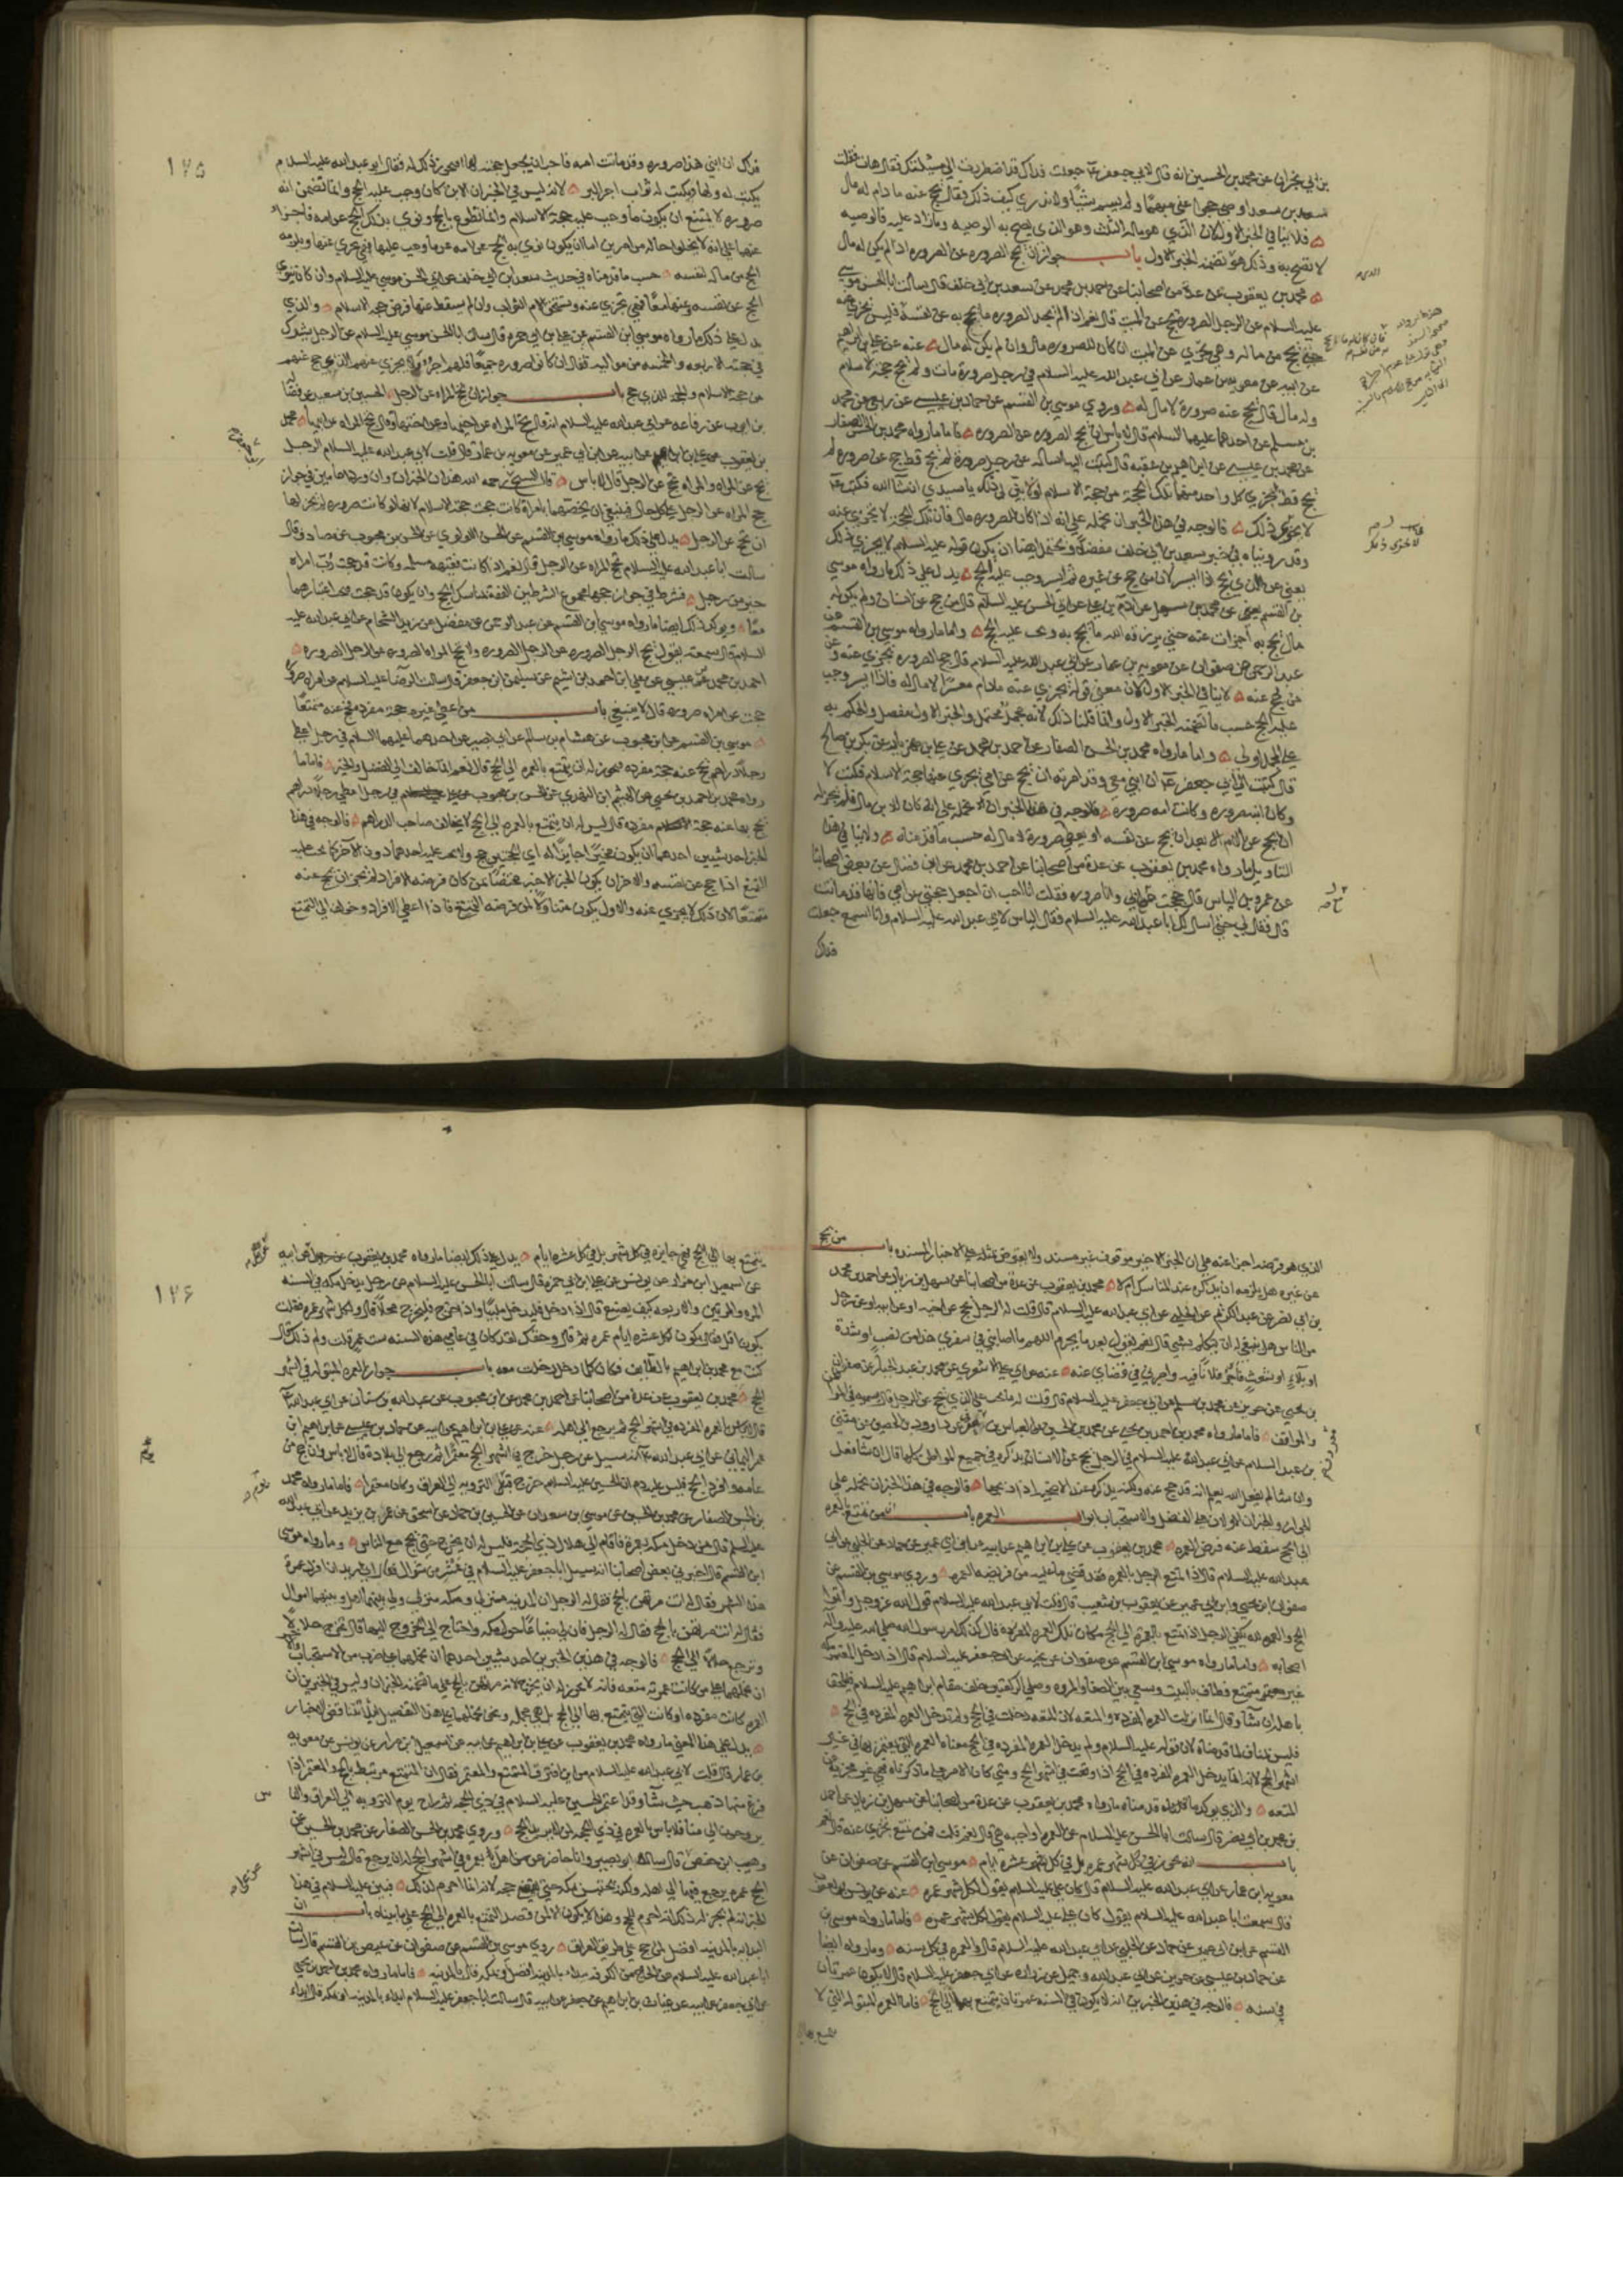 بن ابي نجران عن محمد بن الحسين انه قال لابي جعفر جعلت فداك قد اضطررت الي مسئلتك فقال هات فقلت
سعد بن سعد اوصي حجوا عني مبهما ولم يسم شيئا ولا ندري كيف ذلك فقال يحج عنه ما دام له مال
فلا ينافي الخبر الاول لان الذي هو ماله الثلث وهو الذي يصح به الوصيه وما زاد عليه فالوصيه
لا تصح به وذلك هو تضمنه الخبر الاول باب جواز ان يحج الصروره عن الصروره اذا لم يكن له مال
محمد بن يعقوب عن عدة من اصحابنا عن احمد بن محمد عن سعد بن ابي خلف قال سالت ابا الحسن موسي
عليه السلام عن الرجل الصروره يحج عن الميت قال نعم اذا لم يجد الصروره ما يحج به عن نفسه فليس يجزي عنه
حتي يحج من ماله وهي تجزي عن الميت ان كان للصروره مال وان لم يكن له مال عنه عن علي بن ابرهيم
عن ابيه عن معويه بن عمار عن ابي عبد الله عليه السلام في رجل صرورة مات ولم يحج حجة الاسلام
وله مال قال يحج عنه صرورة لا مال له وروي موسي بن القسم عن حماد بن عيسي عن ربعي عن محمد
بن مسلم عن احدهما عليهما السلام قال لا باس ان يحج الصروره عن الصروره فاما ما رواه محمد بن الحسن الصفار
عن محمد بن عيسي عن ابراهيم بن عقبه قال كتبت اليه اساله عن رجل صرورة لم يحج قط حج عن صروره لم
يحج قط يجزي كل واحد منهما تلك الحجة من حجة الاسلام او لا بين لي ذلك يا سيدي انشا الله فكتب
لا يجزي ذلك فالوجه في هذا الخبر ان نحمله علي انه اذا كان للصروره مال فان تلك الحجة لا تجزي عنه
وقد روينا في خبر سعد بن ابي خلف مفصلا ويحتمل ايضا ان يكون قوله عليه السلام لا يجزي ذلك
يعني عن الذي يحج اذا ايسر لان من حج عن غيره ثم ايسر وجب عليه الحج يدل علي ذلك ما رواه موسي
بن القسم عن محمد بن سهل عن ادم بن علي عن ابي الحسن عليه السلام قال من حج عن انسان ولم يكن له
مال يحج به اجزات عنه حتي يرزقه الله ما يحج به ويجب عليه الحج واما ما رواه موسي بن القسم عن
عبد الرحمن عن صفوان عن معويه بن عمار عن ابي عبد الله عليه السلام قال حج الصروره يجزي عنه وعن
من حج عنه لا ينافي الخبر الاول لان معني قوله يجزي عنه ما دام معسرا لا مال له فاذا ايسر وجب
عليه الحج حسب ما تضمنه الخبر الاول وانما قلنا ذلك لانه مجمل محتمل والخبر الاول مفصل والحكم به
علي المجمل اولي واما ما رواه محمد بن الحسن الصفار عن احمد بن محمد عن علي بن مهزيار عن بكر بن صالح
قال كتبت الي ابي جعفر ان ابني معي وقد امرته ان يحج عن امي ايجزي عنها حجة الاسلام فكتب لا
وكان ابنه صروره وكانت امه صروره فالوجه في هذا الخبر ان نحمله علي انه كان للابن مال فلم يجز له
ان يحج عن الام الا بعد ان يحج عن نفسه او يعطي صرورة لا مال له حسب ما قدمناه ولا ينافي هذا
التاويل ما رواه محمد بن يعقوب عن عدة من اصحابنا عن احمد بن محمد عن ابن فضال عن بعض اصحابنا
عن عمرو بن الياس قال حججت مع ابي وانا صروره فقلت انا احب ان اجعل حجتي عن امي فانها قد ماتت
قال فقال لي حتي اسال لك ابا عبد الله عليه السلام فقال الياس لابي عبد الله عليه السلام وانا اسمع جعلت
فداك
١٢٥
فداك ان ابني هذا صروره وقد ماتت امه فاحب ان يجعل حجته لها افيجوز ذلك له فقال ابو عبد الله عليه السلام
يكتب له ولها ويكتب له ثواب اجر البر لانه ليس في الخبر ان الابن كان وجب عليه الحج وانما تضمن انه
صروره لا يمتنع ان يكون ما وجب عليه حجة الاسلام وانما تطوع بالحج ونوي بذلك الحج عن امه فاجزا
عنها علي انه لا يخلوا حاله من امرين اما ان يكون نوي به الحج عن امه عن ما وجب عليها فهي تجزي عنها ويلزمه
الحج من ماله لنفسه حسب ما قدمناه في حديث سعد بن ابي خلف عن ابي الحسن موسي عليه السلام وان كان نوي
الحج عن نفسه وعنها معا فهي تجزي عنه وتستحق الام الثواب وان لم يسقط عنها فرض حجة الاسلام والذي
يدل علي ذلك ما رواه موسي ابن القسم عن علي بن ابي حمزه قال سالت ابا الحسن موسي عليه السلام عن الرجل يشرك
في حجته الاربعه والخمسه من مواليه فقال ان كانوا صروره جميعا فلهم اجر ولا يجزي عنهم الذي حج عنهم
من حجة الاسلام والحجة للذي حج باب جواز ان تحج المراه عن الرجل الحسين بن سعيد عن فضاله
بن ايوب عن رفاعه عن ابي عبد الله عليه السلام انه قال تحج المراه عن اخيها وعن اختها وقال تحج المراه عن ابيها محمد
بن يعقوب عن علي بن ابرهيم عن ابيه عن ابن ابي عمير عن معويه بن عمار قال قلت لابي عبد الله عليه السلام الرجل
يحج عن المراه والمراه تحج عن الرجل قال لا باس قال الشيخ رحمه الله هذان الخبران وان وردا عامين في جواز
حج المراه عن الرجل علي كل حال فينبغي ان نخصهما بامراة كانت حجت حجة الاسلام لانها لو كانت صروره لم يجز لها
ان تحج عن الرجل يدل علي ذلك ما رواه موسي بن القسم عن الحسن اللولوي عن الحسن بن محبوب عن مصادف قال
سالت ابا عبد الله عليه السلام تحج المراه عن الرجل قال نعم اذا كانت فقيهه مسلمه وكانت قد حجت رب امراه
خير من رجل فشرط في جواز حجها مجموع الشرطين الفقه بمناسك الحج وان يكون قد حجت فيجب اعتبارهما
معا ويوكد ذلك ايضا ما رواه موسي ابن القسم عن عبد الرحمن عن مفضل عن زيد الشحام عن ابي عبد الله عليه
السلام قال سمعته يقول يحج الرجل الصروره عن الرجل الصروره ولا تحج المراه الصروره عن الرجل الصروره
احمد بن محمد بن عيسي عن علي ابن احمد بن اشيم عن سليمن ابن جعفر قال سالت الرضا عليه السلام عن امراه صرورة
حجت عن امراه صروره قال لا ينبغي باب من اعطي غيره حجة مفرده فحج عنه متمتعا
موسي بن القسم عن ابن محبوب عن هشام بن سالم عن ابي بصير عن احدهما عليهما السلام في رجل اعطي
رجلا دراهم يحج عنه حجة مفرده ايجوز له ان يتمتع بالعمره الي الحج قال نعم انما خالف الي الفضل والخير فاما ما
رواه محمد بن احمد بن يحيي عن الهيثم ابن النهدي عن الحسن بن محبوب عن علي في رجل اعطي رجلا دراهم
يحج بها عنه حجة مفرده قال ليس له ان يتمتع بالعمره الي الحج لا يخالف صاحب الدراهم فالوجه في هذا
الخبر احد شيين احدهما ان يكون مخيرا جايزا له اي الحجتين حج ولا يجب عليه احدهما دون الاخر كما يجب عليه
التمتع اذا حج عن نفسه والاخر ان يكون الخبر الاخير مختصا بمن كان فرضه الافراد لم يجز ان يحج عنه
متمتعا لان ذلك لا يجزي عنه والاول يكون متناولا لمن فرضه التمتع فاذا اعطي الافراد وخولف الي التمتع
الذي هو فرضه اجزا عنه علي ان الخبر الاخير موقوف غير مسند ولا يعترض بمثله علي الاخبار المسنده باب من يحج
عن غيره هل يلزمه ان يذكره عند المناسك ام لا محمد بن يعقوب عن عدة من اصحابنا عن سهل بن زياد عن احمد بن محمد
بن ابي نصر عن عبد الكريم عن الحلبي عن ابي عبد الله عليه السلام قال قلت له الرجل يحج عن اخيه او عن ابيه او عن رجل
من الناس هل ينبغي له ان يتكلم بشي قال نعم يقول بعد ما يحرم اللهم ما اصابني في سفري هذا من نصب او شدة
او بلاء او شعث فاجر فلانا فيه واجرني في قضاي عنه عنه عن ابي علي الاشعري عن محمد بن عبد الجبار عن صفوان
بن يحيي عن حريز عن محمد بن مسلم عن ابي جعفر عليه السلام قال قلت له ما يجب علي الذي يحج عن الرجل قال يسميه في المواطن
والمواقف فاما ما رواه محمد بن احمد بن يحيي عن محمد بن الحسين عن العباس بن عامر عن داود بن الحصين عن مثني
بن عبد السلام عن ابي عبد الله عليه السلام في الرجل يحج عن الانسان يذكره في جميع المواطن كلها قال ان شا فعل
وان شا لم يفعل الله يعلم انه قد حج عنه ولكنه يذكره عند الاضحيه اذا ذبحها فالوجه في هذا الخبر ان نحمله علي
الجواز والخبران الاولان علي الفضل والاستحباب ابواب العمره باب من تمتع بالعمره
الي الحج سقط عنه فرض العمره محمد بن يعقوب عن علي بن ابراهيم عن ابيه عن ابن ابي عمير عن حماد عن الحلبي عن ابي
عبد الله عليه السلام قال اذا تمتع الرجل بالعمره فقد قضي ما عليه من فريضه العمره وروي موسي بن القسم عن
صفوان ابن يحيي وابن ابي عمير عن يعقوب بن شعيب قال قلت لابي عبد الله عليه السلام قول الله عز وجل واتموا
الحج والعمره لله يكفي الرجل اذا تمتع بالعمره الي الحج مكان تلك العمره المفرده قال كذلك امر رسول الله صلي الله عليه واله
اصحابه واما ما رواه موسي ابن القسم عن صفوان عن نجيه عن ابي جعفر عليه السلام قال اذا دخل المعتمر مكه
غير متمتع فطاف بالبيت وسعي بين الصفا والمروه وصلي الركعتين خلف مقام ابراهيم عليه السلام فليلحق
باهله ان شا وقال انما انزلت العمره المفرده والمتعه لان المتعه دخلت في الحج ولم تدخل العمره المفرده في الحج
فليس بمناف لما قدمناه لان قوله عليه السلام ولم يدخل العمره المفرده في الحج معناه العمره التي يعتمر بها في غير
اشهر الحج لانه انما يدخل العمره المفرده في الحج اذا وقعت في اشهر الحج ومتي كان الامر علي ما ذكرناه فهي غير مجزيه عن
المتعه والذي يوكد ما قدمناه ما رواه محمد بن يعقوب عن عدة من اصحابنا عن سهل بن زياد عن احمد
بن محمد بن ابي نصر قال سالت ابا الحسن عليه السلام عن العمره اواجبه هي قال نعم قلت فمن تمتع يجزي عنه قال نعم
باب انه يجوز في كل شهر عمره بل في كل عشره ايام موسي ابن القسم عن صفوان عن
معويه ابن عمار عن ابي عبد الله عليه السلام قال كان علي عليه السلام يقول لكل شهر عمره عنه عن يونس بن يعقوب
قال سمعت ابا عبد الله عليه السلام يقول كان علي عليه السلام يقول لكل شهر عمره فاما ما رواه موسي بن
القسم عن ابن ابي عمير عن حماد عن الحلبي عن ابي عبد الله عليه السلام قال العمره في كل سنه وما رواه ايضا
عن حماد بن عيسي عن حريز عن ابي عبد الله وجميل عن زراره عن ابي جعفر عليه السلام قال لا يكون عمرتان
في سنه فالوجه في هذين الخبرين انه لا يكون في السنه عمرتان يتمتع بهما الي الحج فاما العمره المبتوله التي لا
يتمتع بها
١٢٦
يتمتع بها الي الحج فهي جايزه في كل شهر بل في كل عشره ايام يدل علي ذلك ايضا ما رواه محمد بن يعقوب عن علي بن ابرهيم عن ابيه
عن اسمعيل ابن مرار عن يونس عن علي بن ابي حمزه قال سالت ابا الحسن عليه السلام عن رجل يدخل مكه في السنه
المره والمرتين والاربعه كيف يصنع قال اذا دخل فليدخل ملبيا واذا خرج فليخرج محلا قال ولكل شهر عمره فقلت
يكون اقل قال يكون لكل عشره ايام عمره ثم قال وحقك لقد كان في عامي هذه السنه ست عمر قلت ولم ذلك قال
كنت مع محمد بن ابراهيم بالطايف فكان كلما دخل دخلت معه باب جواز العمره المبتوله في اشهر
الحج محمد بن يعقوب عن عدة من اصحابنا عن احمد بن محمد عن ابن محبوب عن عبد الله بن سنان عن ابي عبد الله
قال لا باس بالعمره المفرده في اشهر الحج ثم يرجع الي اهله عنه عن علي بن ابراهيم عن ابيه عن حماد بن عيسي عن ابراهيم ابن
عمر اليماني عن ابي عبد الله انه سيل عن رجل خرج في اشهر الحج معتمرا ثم رجع الي بلاده قال لا باس وان حج من
عامه وافرد الحج فليس عليه دم ان الحسين عليه السلام خرج قبل الترويه الي العراق وكان معتمرا فاما ما رواه محمد
بن الحسن الصفار عن محمد بن الحسين عن موسي بن سعدان عن الحسين بن حماد عن اسحق عن عمر بن يزيد عن ابي عبد الله
عليه السلم قال من دخل مكه بعمرة فاقام الي هلال ذي الحجه فليس له ان يخرج حتي يحج مع الناس وما رواه موسي
ابن القسم قال اخبرني بعض اصحابنا انه سيل ابا جعفر عليه السلام في عشر من شوال فقال اني اريد ان افرد عمرة
هذا الشهر فقال انت مرتهن بالحج فقال له الرجل ان المدينه منزلي ومكه منزلي ولي بينهما اهل وبينهما اموال
فقال له انت مرتهن بالحج فقال له الرجل فان لي ضياعا حول مكه واحتاج الي الخروج اليها قال تخرج حلالا
وترجع حلالا الي الحج فالوجه في هذين الخبرين احد شيين احدهما ان نحملهما علي ضرب من الاستحباب
ان نحملهما علي من كانت عمرته متعه فانه لا يجوز له ان يخرج لانه مرتهن بالحج علي ما تضمنه الخبران وليس في الخبرين ان
العمره كانت مفرده او كانت التي يتمتع بها الي الحج بل هي مجمله ونحن نحملها علي هذا التفصيل ليلا تتناقض الاخبار
يدل علي هذا المعني ما رواه محمد بن يعقوب عن علي بن ابراهيم عن ابيه عن اسمعيل ابن مرار عن يونس عن معويه
بن عمار قال قلت لابي عبد الله عليه السلام من اين افترق المتمتع والمعتمر فقال ان المتمتع مرتبط بالحج والمعتمر اذا
فرغ منها ذهب حيث شا وقد اعتمر الحسين عليه السلام في ذي الحجه ثم راح يوم الترويه الي العراق والناس
يروحون الي منا فلا باس بالعمره في ذي الحجه لمن لا يريد الحج وروي محمد بن الحسن الصفار عن محمد بن الحسين عن
وهيب ابن حفص قال ساله ابو بصير وانا حاضر عن من اهل بعمره في اشهر الحج له ان يرجع قال ليس في اشهر
الحج عمره يرجع فيها الي اهله ولكنه يحتبس بمكه حتي يقضي حجه لانه انما احرم لذلك فبين عليه السلام في هذا
الخبر انه لم يجز له ذلك لانه احرم للحج وهذا لا يكون الا لمن قصد التمتع بالعمره الي الحج علي ما بيناه باب ان
البداه بالمدينه افضل لمن حج علي طريق العراق روي موسي بن القسم عن صفوان عن عيص بن القسم قال سالت
ابا عبد الله عليه السلام عن الحاج من الكوفه يبدا بالمدينه افضل او بمكه قال بالمدينه فاما ما رواه محمد بن احمد بن يحيي
عن ابي جعفر عن ابيه عن غياث بن ابراهيم عن جعفر عن ابيه قال سالت ابا جعفر عليه السلام ابدا بالمدينه او بمكه قال ابدا